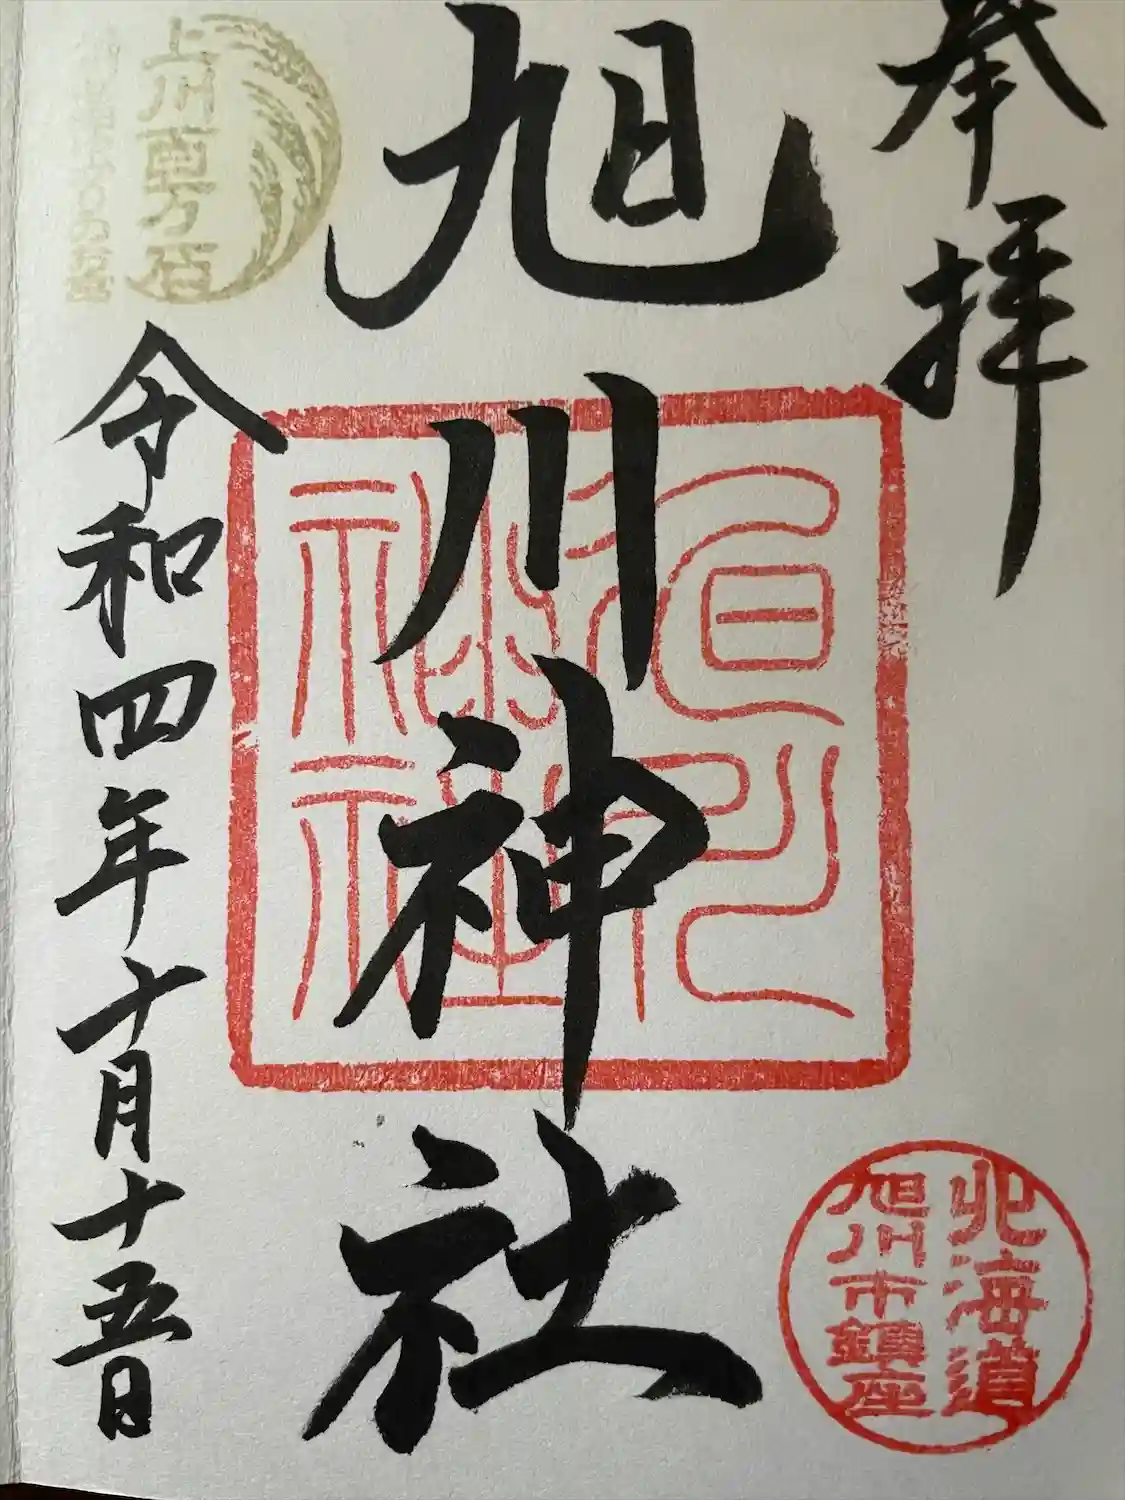 奉拝
旭川神社
令和四年十月十五日
旭川
神社
北海道
旭川市鎮座
上川百万石